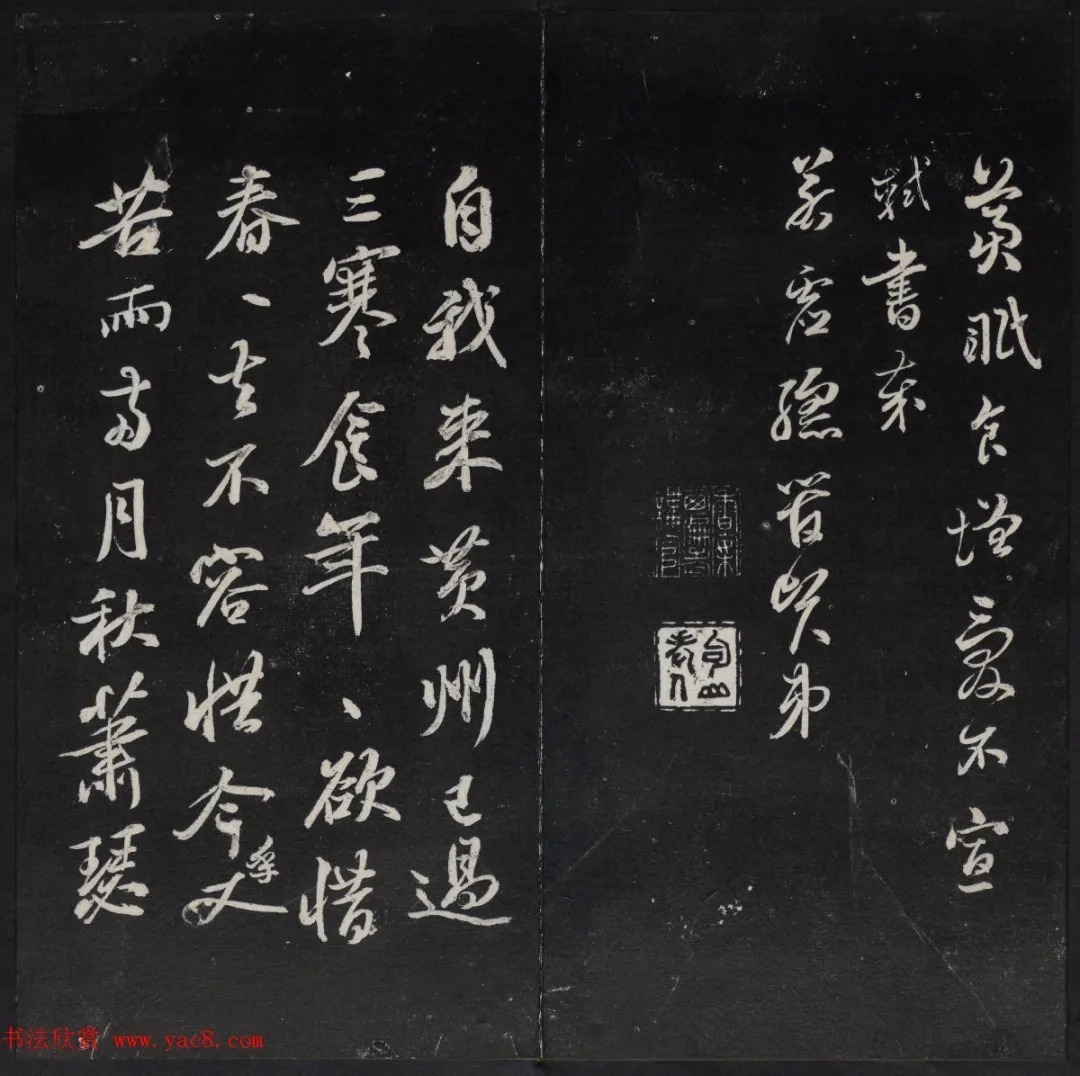 冀眠食增愛不宣
軾書奉
若虛總管賢弟
自我來黃州已過
三寒食年、欲惜
春、去不容惜今年又
苦雨兩月秋蕭瑟
书法欣赏 www.yac8.com